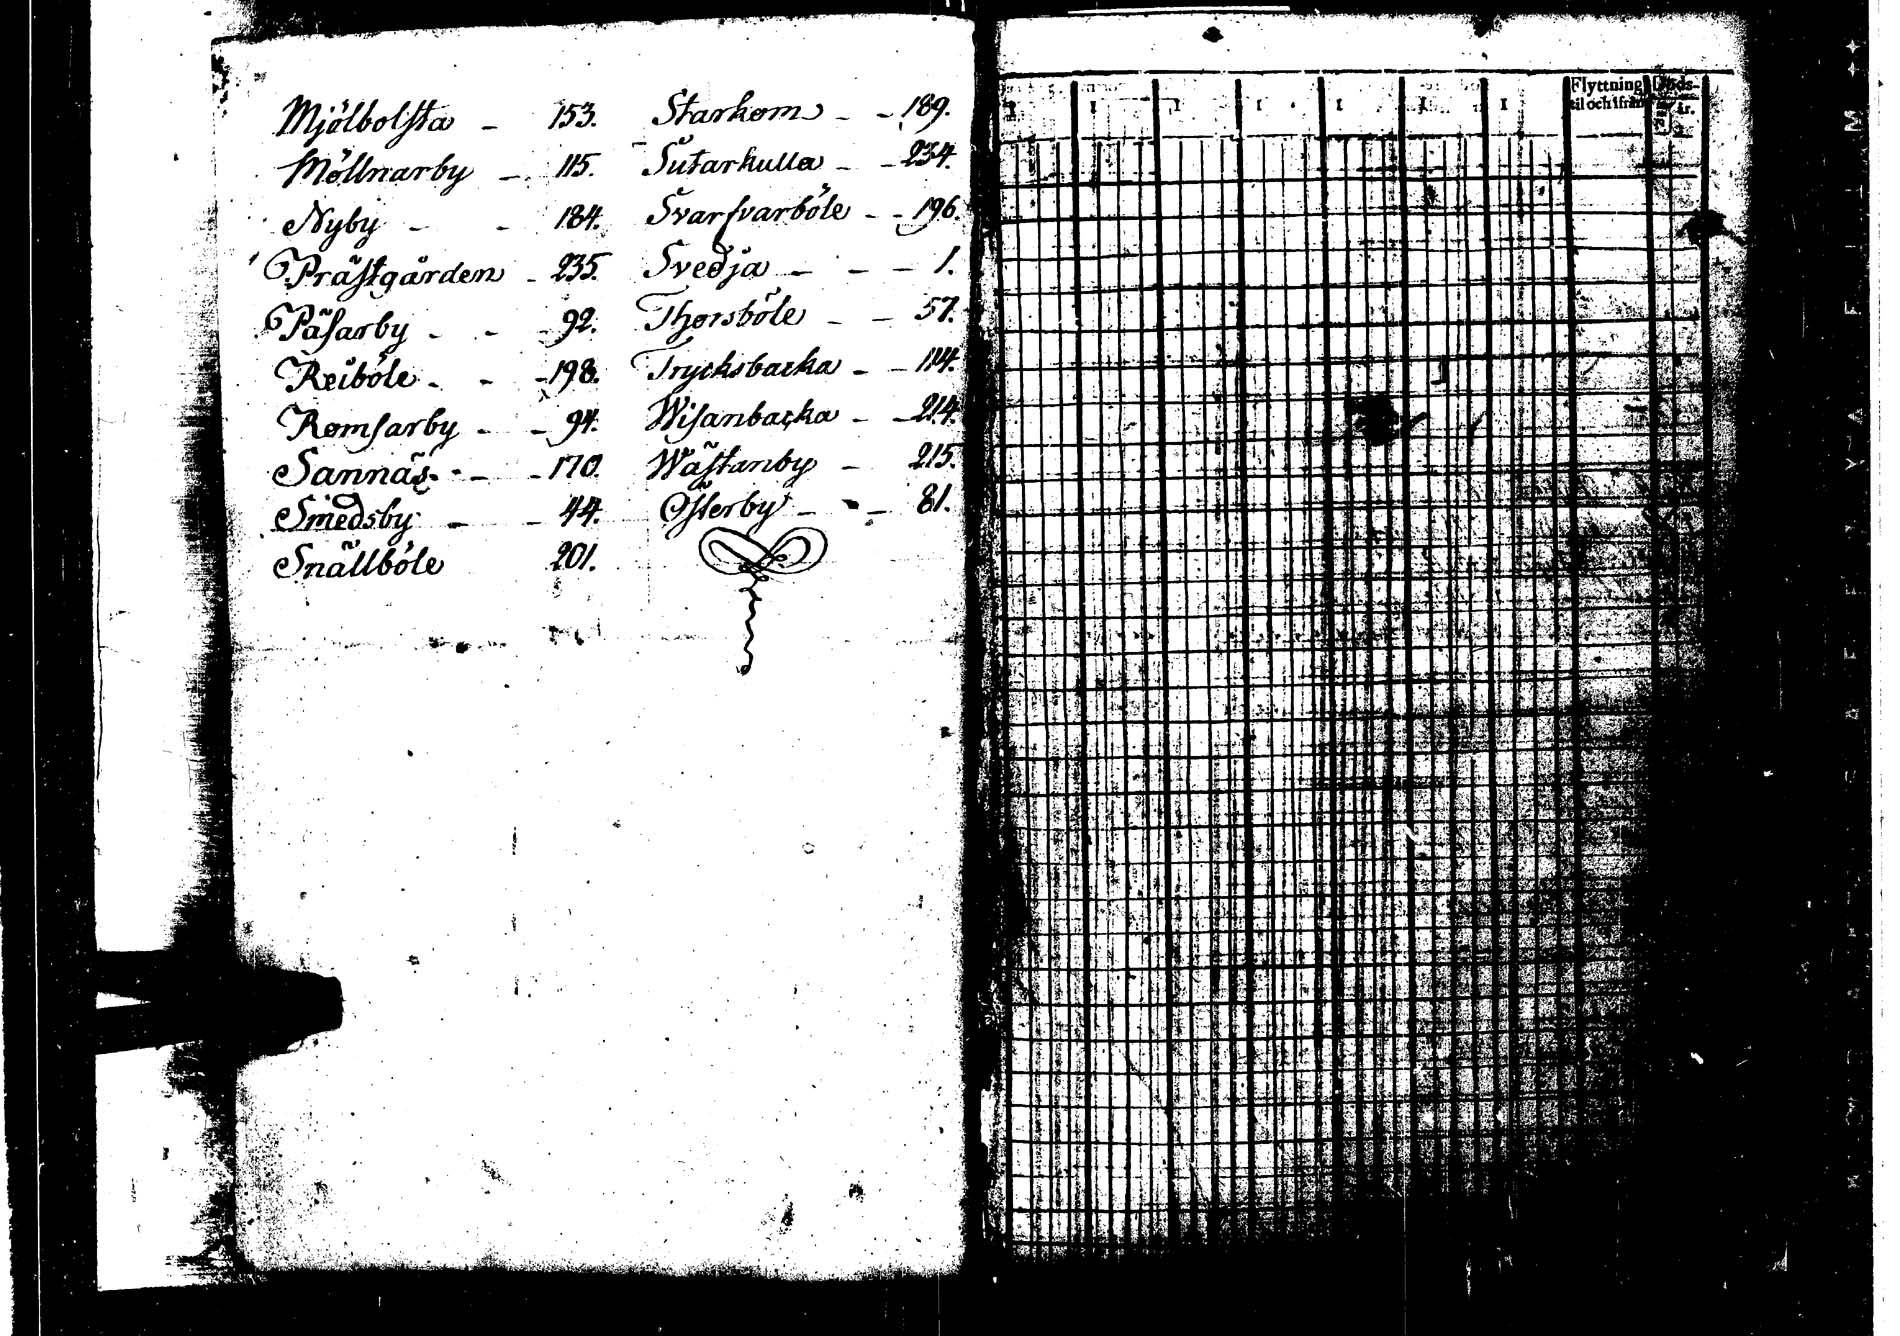 Mjölbolsta - 153.
Möllnarby - 115.
Nyby - - 184.
Prästgården - 235.
Påsarby - - 92.
Reiböle - - 198.
Romsarby - - 94.
Sannäs - - 170.
Smedsby - - 44.
Snällböle 201.
Starkom - - 189.
Sutarkulla - - 234.
Svarfvarböle - - 196.
Svedja - - - 1.
Thorsböle - - 57.
Trycksbacka - - 114.
Wisanbacka - - 214.
Wästanby - 215.
Österby - - 81.
1 1 1 1 1 1 1
Flyttning
til och ifrån
Döds-
år.